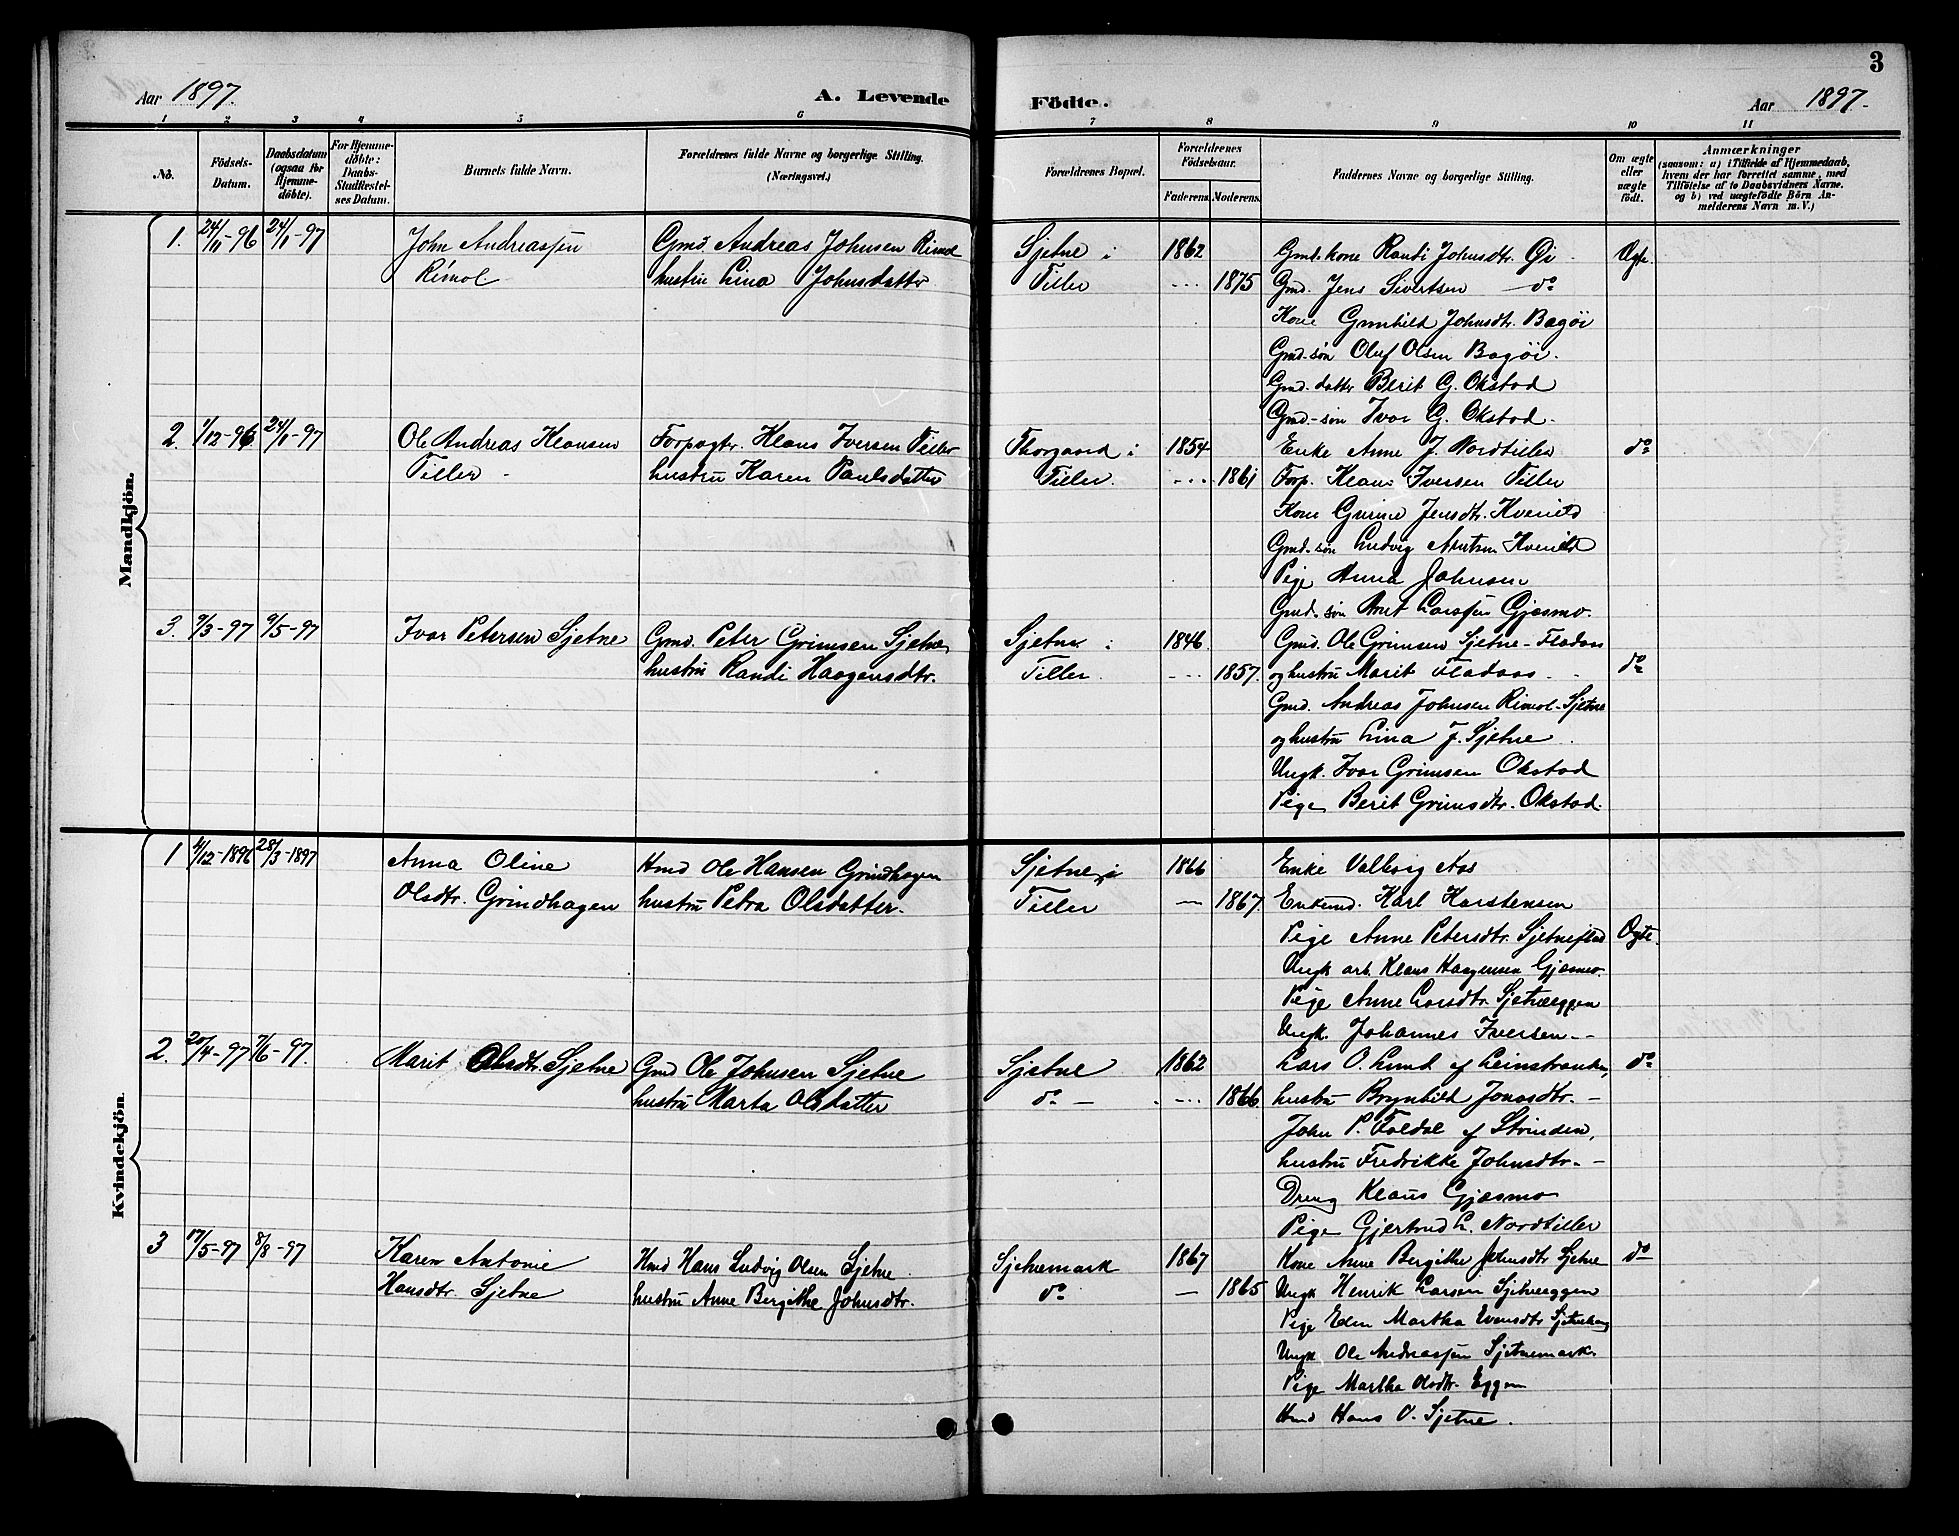 3
Aar 1897.
A. Levende
Födte.
Aar 1897.
1 2 3 4 5 6 7 8 9 10 11
No.
Födsels-
Datum.
Daabsdatum
(ogsaa for
Hjemme-
döbte).
For Hjemme-
döbte:
Daabs-
Stadfæstel-
ses Datum.
Barnets fulde Navn.
Forældrenes fulde Navne og borgerlige Stilling.
(Næringsvei.)
Forældrenes Bopæl.
Forældrenes
Födselsaar.
Faderens.
Moderens.
Faddernes Navne og borgerlige Stilling.
Om ægte
eller
uægte
født.
Anmærkninger
(saasom: a) i Tilfælde af Hjemmedaab,
hvem der har forrettet samme, med
Tilföielse af to Daabsvidners Navne.
og b) ved uægtefödte Börn An-
melderens Navn m. V.)
Mandkjön.
1. 24/11-96 24/1-97 John Andreassen Gmd. Andreas Johnsen Rimol Sjetne i 1862 Gmd. kone Randi Johnsdtr. Øi Ægte.
Rimol hustru Lina Johnsdatter Tiller --- 1875 Gmd. Jens Sivertsen do
Kone Gunhild Johnsdtr. Bagøi
Gmd. søn Oluf Olsen Bagøi.
Gmd. datter Berit G. Okstad
Gmd-søn Ivar G. Okstad.
2. 1/12-96 24/1-97 Ole Andreas Klausen Forpagter. Klaus Iversen Tiller Thorgaard i 1854 Enke Anne J. Nordtiller do
Tiller - hustru Karen Paulsdatter Tiller. --- 1861 Forp. Klaus Iversen Tiller
Kone Gurine Jensdtr. Kvenild
Gmd-søn Ludvig Arntsen Kvenild
Pige Anna Johnsen
Gmd. søn Arnt Larssen Gjæsmo.
3. 7/3-97 9/5-97 Ivar Petersen Sjetne Gmd. Peter Grimsen Sjetne Sjetne i 1846 Gmd. Ole Grimsen Sjetne-Fladaas
hustru Randi Haagensdtr. Tiller. --- 1857. og hustru Marit Fladaas do
Gmd. Andreas Johnsen Rimol-Sjetne
og hustru Lina J. Sjetne.
Ungk. Ivar Grimsen Okstad
Pige Berit Grimsdtr. Okstad.
Kvindekjön.
1 4/12-1896 28/3-1897 Anna Oline Hmd Ole Hansen Grindhagen Sjetne i 1866 Enke Valborg Aas
Olsdtr. Grindhagen hustru Petra Olsdatter. Tiller — 1867. Enkemd. Karl Karstensen
Pige Anne Petersdtr. Sjetneflad Ægte.
Ungk arb. Klaus Haagensen Gjæsmo.
Pige Anne Larsdtr. Sjetneeggen
Ungk. Johannes Iversen --
2. 20/4-97 7/6-97. Marit Olsdtr. Sjetne Gmd Ole Johnsen Sjetne Sjetne 1862 Lars O. Lund af Leinstranden, do
hustru Marta Olsdatter do - --- 1866. hustru Brynhild Jonasdtr. -
John P. Foldal af Strinden,
hustru Fredrikke Johnsdtr. -
Dreng Klaus Gjæsmo
Pige Gjertrud L. Nordtiller
3 17/5-97 8/8-97 Karen Antonie Hmd Hans Ludvig Olsen Sjetne. Sjetnemark 1867 Kone Anne Bergithe Johnsdtr Sjetne do
Hansdtr. Sjetne hustru Anne Bergithe Johnsdtr. do — 1865 Ungk Henrik Larsen Sjetneeggen
Pige Martha Evensdtr
Ungk Ole Andreassen Sjetnemark.
Pige Martha Olsdtr. Eggen
Hmd Hans O. Sjetne.